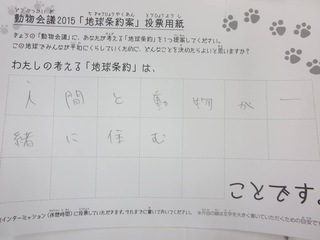 動物会議2015「地球条約案」投票用紙
きょうの「動物会議」に、あなたが考える「地球条約」を1つ提案してください。
この地球でみんなが平和にくらしていくために、どんなことを決めたらよいと思いますか?
わたしの考える「地球条約」は、
人間と動物が一
緒に住む
すでとこ
(インターミッション(休憩時間)に投票していただきます。それまでに書いておいてください。